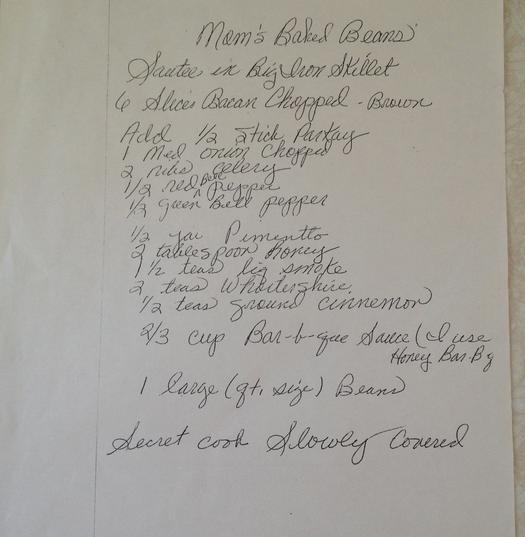 Mom's Baked Beans
Sautee in Big Iron Skillet
6 Slices Bacan Chopped - Brown
Add 1/2 Stick Parkay
1 Med onion Chopped
2 ribs celery
1/2 red Bell pepper
1/2 green Bell pepper
1/2 jar Pimentto
2 tablespoon honey
1 1/2 teas liq smoke
2 teas Whistershire
1/2 teas ground cinnemon
2/3 cup Bar-b-que Sauce (I use
Honey Bar-B-q
1 large (qt. size) Beans
Secret cook Slowly Covered